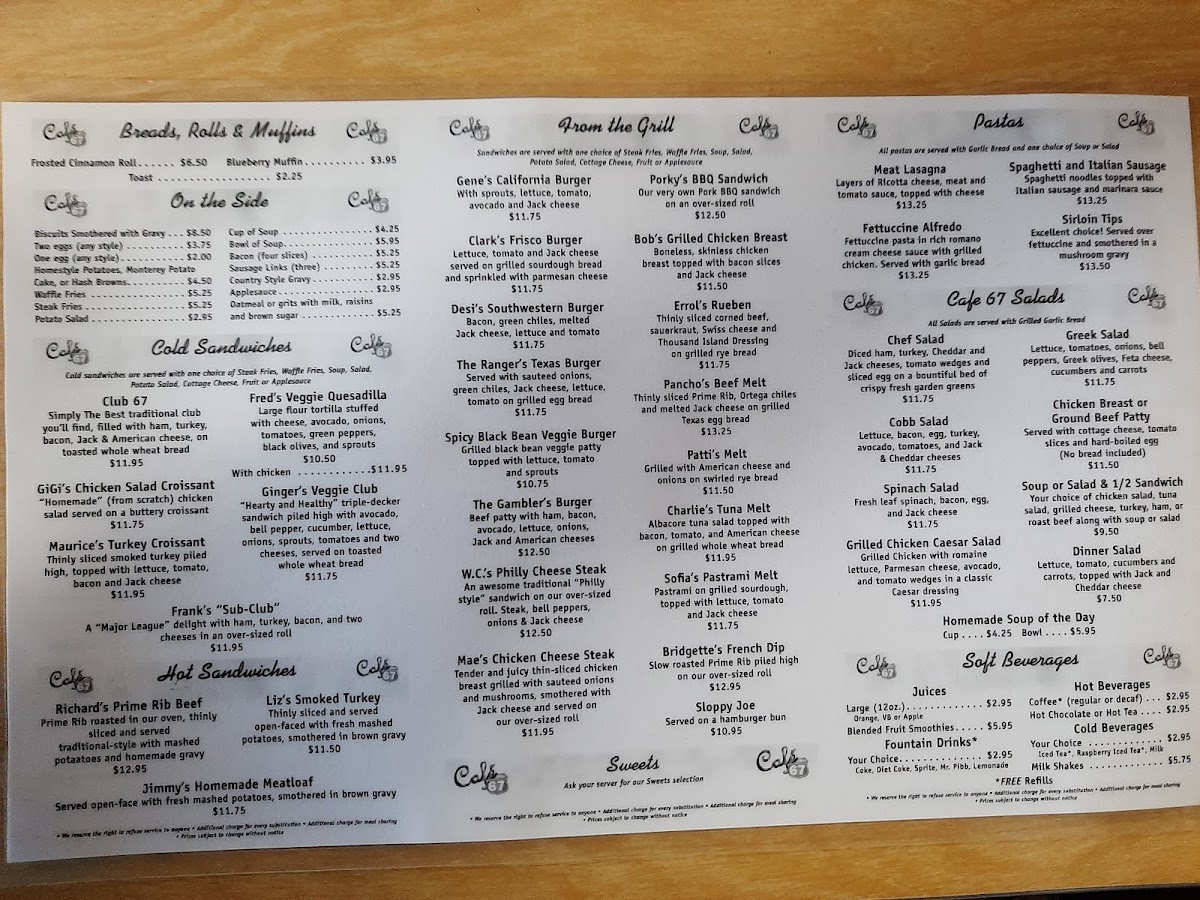 Café 67
Breads, Rolls & Muffins
Café 67
Frosted Cinnamon Roll...... $6.50
Blueberry Muffin.......... $3.95
Toast ................... $2.25
Café 67
On the Side
Café 67
Biscuits Smothered with Gravy... $8.50
Two eggs (any style)........... $3.75
One egg (any style)............ $2.00
Homestyle Potatoes, Monterey Potato
Cake, or Hash Browns........... $4.50
Waffle Fries................... $5.25
Steak Fries.................... $5.25
Potato Salad................... $2.95
Cup of Soup................... $4.25
Bowl of Soup.................. $5.95
Bacon (four slices)........... $5.25
Sausage Links (three)......... $5.25
Country Style Gravy........... $2.95
Applesauce.................... $2.95
Oatmeal or grits with milk, raisins
and brown sugar .............. $5.25
Café 67
Cold Sandwiches
Café 67
Cold sandwiches are served with one choice of Steak Fries, Waffle Fries, Soup, Salad,
Potato Salad, Cottage Cheese, Fruit or Applesauce
Club 67
Simply The Best traditional club
you'll find, filled with ham, turkey,
bacon, Jack & American cheese, on
toasted whole wheat bread
$11.95
GiGi's Chicken Salad Croissant
"Homemade" (from scratch) chicken
salad served on a buttery croissant
$11.75
Maurice's Turkey Croissant
Thinly sliced smoked turkey piled
high, topped with lettuce, tomato,
bacon and Jack cheese
$11.95
Fred's Veggie Quesadilla
Large flour tortilla stuffed
with cheese, avocado, onions,
tomatoes, green peppers,
black olives, and sprouts
$10.50
With chicken ............$11.95
Ginger's Veggie Club
"Hearty and Healthy" triple-decker
sandwich piled high with avocado,
bell pepper, cucumber, lettuce,
onions, sprouts, tomatoes and two
cheeses, served on toasted
whole wheat bread
$11.75
Frank's "Sub-Club"
A "Major League" delight with ham, turkey, bacon, and two
cheeses in an over-sized roll
$11.95
Café 67
Hot Sandwiches
Café 67
Richard's Prime Rib Beef
Prime Rib roasted in our oven, thinly
sliced and served
traditional-style with mashed
potaatoes and homemade gravy
$12.95
Liz's Smoked Turkey
Thinly sliced and served
open-faced with fresh mashed
potatoes, smothered in brown gravy
$11.50
Jimmy's Homemade Meatloaf
Served open-face with fresh mashed potatoes, smothered in brown gravy
$11.75
• We reserve the right to refuse service to anyone • Additional charge for every substitution • Additional charge for meal sharing
• Prices subject to change without notice
Café 67
From the Grill
Café 67
Sandwiches are served with one choice of Steak Fries, Waffle Fries, Soup, Salad,
Potato Salad, Cottage Cheese, Fruit or Applesauce
Gene's California Burger
With sprouts, lettuce, tomato,
avocado and Jack cheese
$11.75
Clark's Frisco Burger
Lettuce, tomato and Jack cheese
served on grilled sourdough bread
and sprinkled with parmesan cheese
$11.75
Desi's Southwestern Burger
Bacon, green chiles, melted
Jack cheese, lettuce and tomato
$11.75
The Ranger's Texas Burger
Served with sauteed onions,
green chiles, Jack cheese, lettuce,
tomato on grilled egg bread
$11.75
Spicy Black Bean Veggie Burger
Grilled black bean veggie patty
topped with lettuce, tomato
and sprouts
$10.75
The Gambler's Burger
Beef patty with ham, bacon,
avocado, lettuce, onions,
Jack and American cheeses
$12.50
W.C.'s Philly Cheese Steak
An awesome traditional "Philly
style" sandwich on our over-sized
roll. Steak, bell peppers,
onions & Jack cheese
$12.50
Mae's Chicken Cheese Steak
Tender and juicy thin-sliced chicken
breast grilled with sauteed onions
and mushrooms, smothered with
Jack cheese and served on
our over-sized roll
$11.95
Porky's BBQ Sandwich
Our very own Pork BBQ sandwich
on an over-sized roll
$12.50
Bob's Grilled Chicken Breast
Boneless, skinless chicken
breast topped with bacon slices
and Jack cheese
$11.50
Errol's Rueben
Thinly sliced corned beef,
sauerkraut, Swiss cheese and
Thousand Island Dressing
on grilled rye bread
$11.75
Pancho's Beef Melt
Thinly sliced Prime Rib, Ortega chiles
and melted Jack cheese on grilled
Texas egg bread
$13.25
Patti's Melt
Grilled with American cheese and
onions on swirled rye bread
$11.50
Charlie's Tuna Melt
Albacore tuna salad topped with
bacon, tomato, and American cheese
on grilled whole wheat bread
$11.95
Sofia's Pastrami Melt
Pastrami on grilled sourdough,
topped with lettuce, tomato
and Jack cheese
$11.75
Bridgette's French Dip
Slow roasted Prime Rib piled high
on our over-sized roll
$12.95
Sloppy Joe
Served on a hamburger bun
$10.95
Café 67
Sweets
Café 67
Ask your server for our Sweets selection
• We reserve the right to refuse service to anyone • Additional charge for every substitution • Additional charge for meal sharing
• Prices subject to change without notice
Café 67
Pastas
Café 67
All pastas are served with Garlic Bread and one choice of Soup or Salad
Meat Lasagna
Layers of Ricotta cheese, meat and
tomato sauce, topped with cheese
$13.25
Fettuccine Alfredo
Fettuccine pasta in rich romano
cream cheese sauce with grilled
chicken. Served with garlic bread
$13.25
Spaghetti and Italian Sausage
Spaghetti noodles topped with
Italian sausage and marinara sauce
$13.25
Sirloin Tips
Excellent choice! Served over
fettuccine and smothered in a
mushroom gravy
$13.50
Café 67
Cafe 67 Salads
Café 67
All Salads are served with Grilled Garlic Bread
Chef Salad
Diced ham, turkey, Cheddar and
Jack cheeses, tomato wedges and
sliced egg on a bountiful bed of
crispy fresh garden greens
$11.75
Cobb Salad
Lettuce, bacon, egg, turkey,
avocado, tomatoes, and Jack
& Cheddar cheeses
$11.75
Spinach Salad
Fresh leaf spinach, bacon, egg,
and Jack cheese
$11.75
Grilled Chicken Caesar Salad
Grilled Chicken with romaine
lettuce, Parmesan cheese, avocado,
and tomato wedges in a classic
Caesar dressing
$11.95
Greek Salad
Lettuce, tomatoes, onions, bell
peppers, Greek olives, Feta cheese,
cucumbers and carrots
$11.75
Chicken Breast or
Ground Beef Patty
Served with cottage cheese, tomato
slices and hard-boiled egg
(No bread included)
$11.50
Soup or Salad & 1/2 Sandwich
Your choice of chicken salad, tuna
salad, grilled cheese, turkey, ham, or
roast beef along with soup or salad
$9.50
Dinner Salad
Lettuce, tomato, cucumbers and
carrots, topped with Jack and
Cheddar cheese
$7.50
Homemade Soup of the Day
Cup .... $4.25 Bowl .... $5.95
Café 67
Soft Beverages
Café 67
Juices
Large (12oz.)............. $2.95
Orange, V8 or Apple
Blended Fruit Smoothies..... $5.95
Fountain Drinks*
Your Choice.............. $2.95
Coke, Diet Coke, Sprite, Mr. Pibb, Lemonade
Hot Beverages
Coffee* (regular or decaf) ... $2.95
Hot Chocolate or Hot Tea.... $2.95
Cold Beverages
Your Choice ............. $2.95
Iced Tea*, Raspberry Iced Tea*, Milk
Milk Shakes ............. $5.75
*FREE Refills
• We reserve the right to refuse service to anyone • Additional charge for every substitution • Additional charge for meal sharing
• Prices subject to change without notice